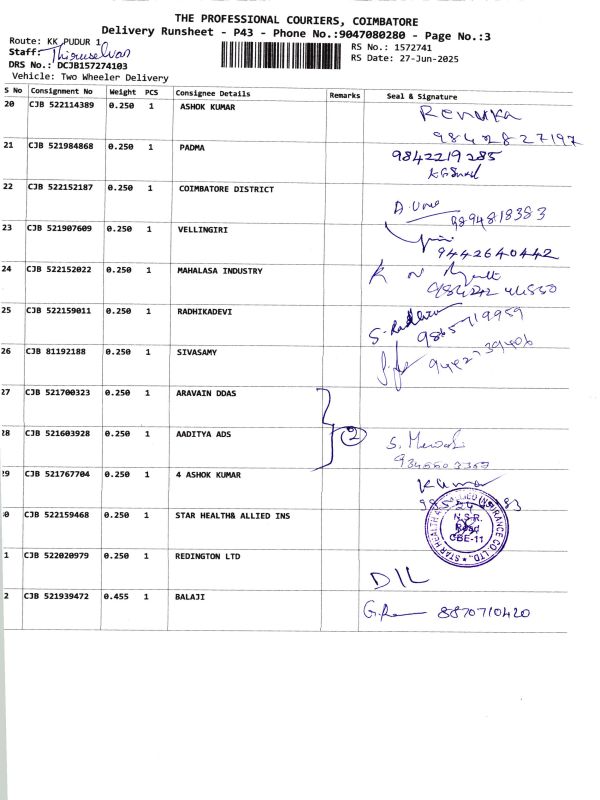 THE PROFESSIONAL COURIERS, COIMBATORE
Delivery Runsheet - P43 - Phone No.:9047080280 - Page No.:3
Route: KK PUDUR 1
RS No.: 1572741
Staff: Thiruselvan
RS Date: 27-Jun-2025
DRS No.: DCJB157274103
Vehicle: Two Wheeler Delivery
S No Consignment No Weight PCS Consignee Details Remarks Seal & Signature
20 CJB 522114389 0.250 1 ASHOK KUMAR Renuka
9842827197
21 CJB 521984868 0.250 1 PADMA 9842219285
22 CJB 522152187 0.250 1 COIMBATORE DISTRICT
A. Uma 8894818383
23 CJB 521907609 0.250 1 VELLINGIRI
9442640442
24 CJB 522152022 0.250 1 MAHALASA INDUSTRY
25 CJB 522159011 0.250 1 RADHIKADEVI S-Radhika
9865719959
26 CJB 81192188 0.250 1 SIVASAMY
9442739406
27 CJB 521700323 0.250 1 ARAVAIN DDAS
28 CJB 521603928 0.250 1 AADITYA ADS 2
29 CJB 521767704 0.250 1 4 ASHOK KUMAR Kumar
30 CJB 522159468 0.250 1 STAR HEALTH& ALLIED INS
STAR HEALTH & ALLIED INSURANCE CO. LTD.
N.S.R.
Road
CBE-11
1 CJB 522020979 0.250 1 REDINGTON LTD
DIL
2 CJB 521939472 0.455 1 BALAJI
8870710420